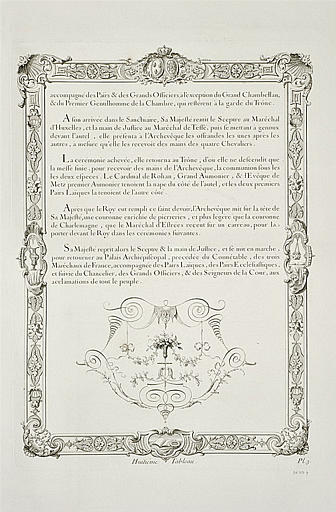 accompagné des Pairs & des Grands Officiers à l'exception du Grand Chambellan,
& du Premier Gentilhomme de la Chambre, qui resterent à la garde du Trône.
A son arrivée dans le Sanctuaire, Sa Majesté remit le Sceptre au Maréchal
d'Huxelles, et la main de Justice au Maréchal de Tessé, puis se mettant à genoux
devant l'autel, elle presenta à l'Archevêque les offrandes les unes après les
autres, à mesure qu'elle les recevoit des mains des quatre Chevaliers.
La ceremonie achevée, elle retourna au Trône, d'ou elle ne descendit que
la messe finie, pour recevoir des mains de l'Archevêque, la communion sous les
les deux especes. Le Cardinal de Rohan, Grand Aumonier, & l'Evêque de
Metz premier Aumonier tenoient la nape du côté de l'autel, et les deux premiers
Pairs Laïques la tenoient de l'autre côté.
Après que le Roy eut rempli ce saint devoir, l'Archevêque mit sur la tête de
Sa Majesté, une couronne enrichie de pierreries, et plus legere que la couronne
de Charlemagne, que le Maréchal d'Estrées reçut sur un carreau, pour la
porter devant le Roy dans les ceremonies suivantes.
Sa Majesté reprit alors le Sceptre & la main de Justice, et se mit en marche,
pour retourner au Palais Archiépiscopal, precedée du Connétable, des trois
Maréchaux de France, accompagnée des Pairs Laïques, des Pairs Ecclesiastiques,
et suivie du Chancelier, des Grands Officiers, & des Seigneurs de la Cour, aux
acclamations de tout le peuple.
Huitieme Tableau. Pl. 3